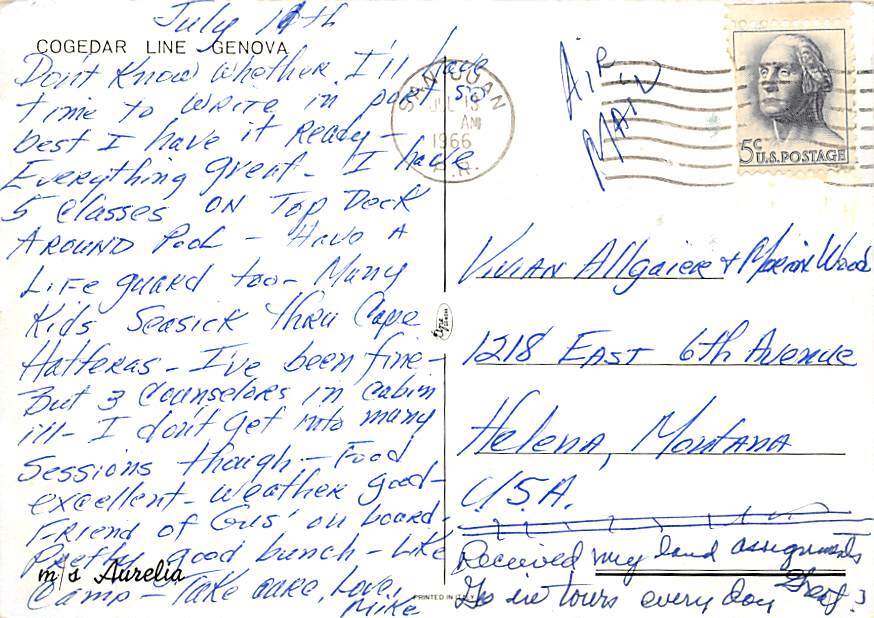 July 11th
COGEDAR LINE GENOVA
Don't know whether I'll have
time to write in port so
best I have it ready -
Everything great - I have
5 classes on Top Deck
Around Pool - Have a
Life guard too - Many
Kids Seasick thru Cape
Hatteras - I've been fine -
But 3 Counselors in cabin
ill - I don't get into many
sessions though - Food
excellent - Weather good -
Friend of Gus' on board.
Pretty good bunch - Like
m/s Aurelia
Camp - Take care, Love,
Mike
SAN JUAN
JUL 13
AM
1966
P.R.
AIR
MAIL
5¢ U.S. POSTAGE
Vivian Allgaier + Marion Wood
1218 East 6th Avenue
Helena, Montana
U.S.A.
Received my land assignments
Go in tours every day
PRINTED IN ITALY